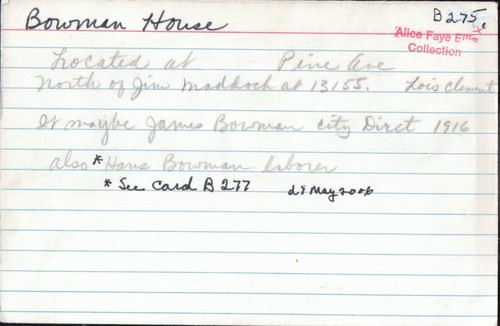 Bowman House B275
Alice Faye
Collection
Located at Pine Ave
North of Jim Maddock at 13155. Lois Clement
It maybe James Bowman city Direct 1916
also * Hans Bowman laborer
* See Card B 277 29 May 2006